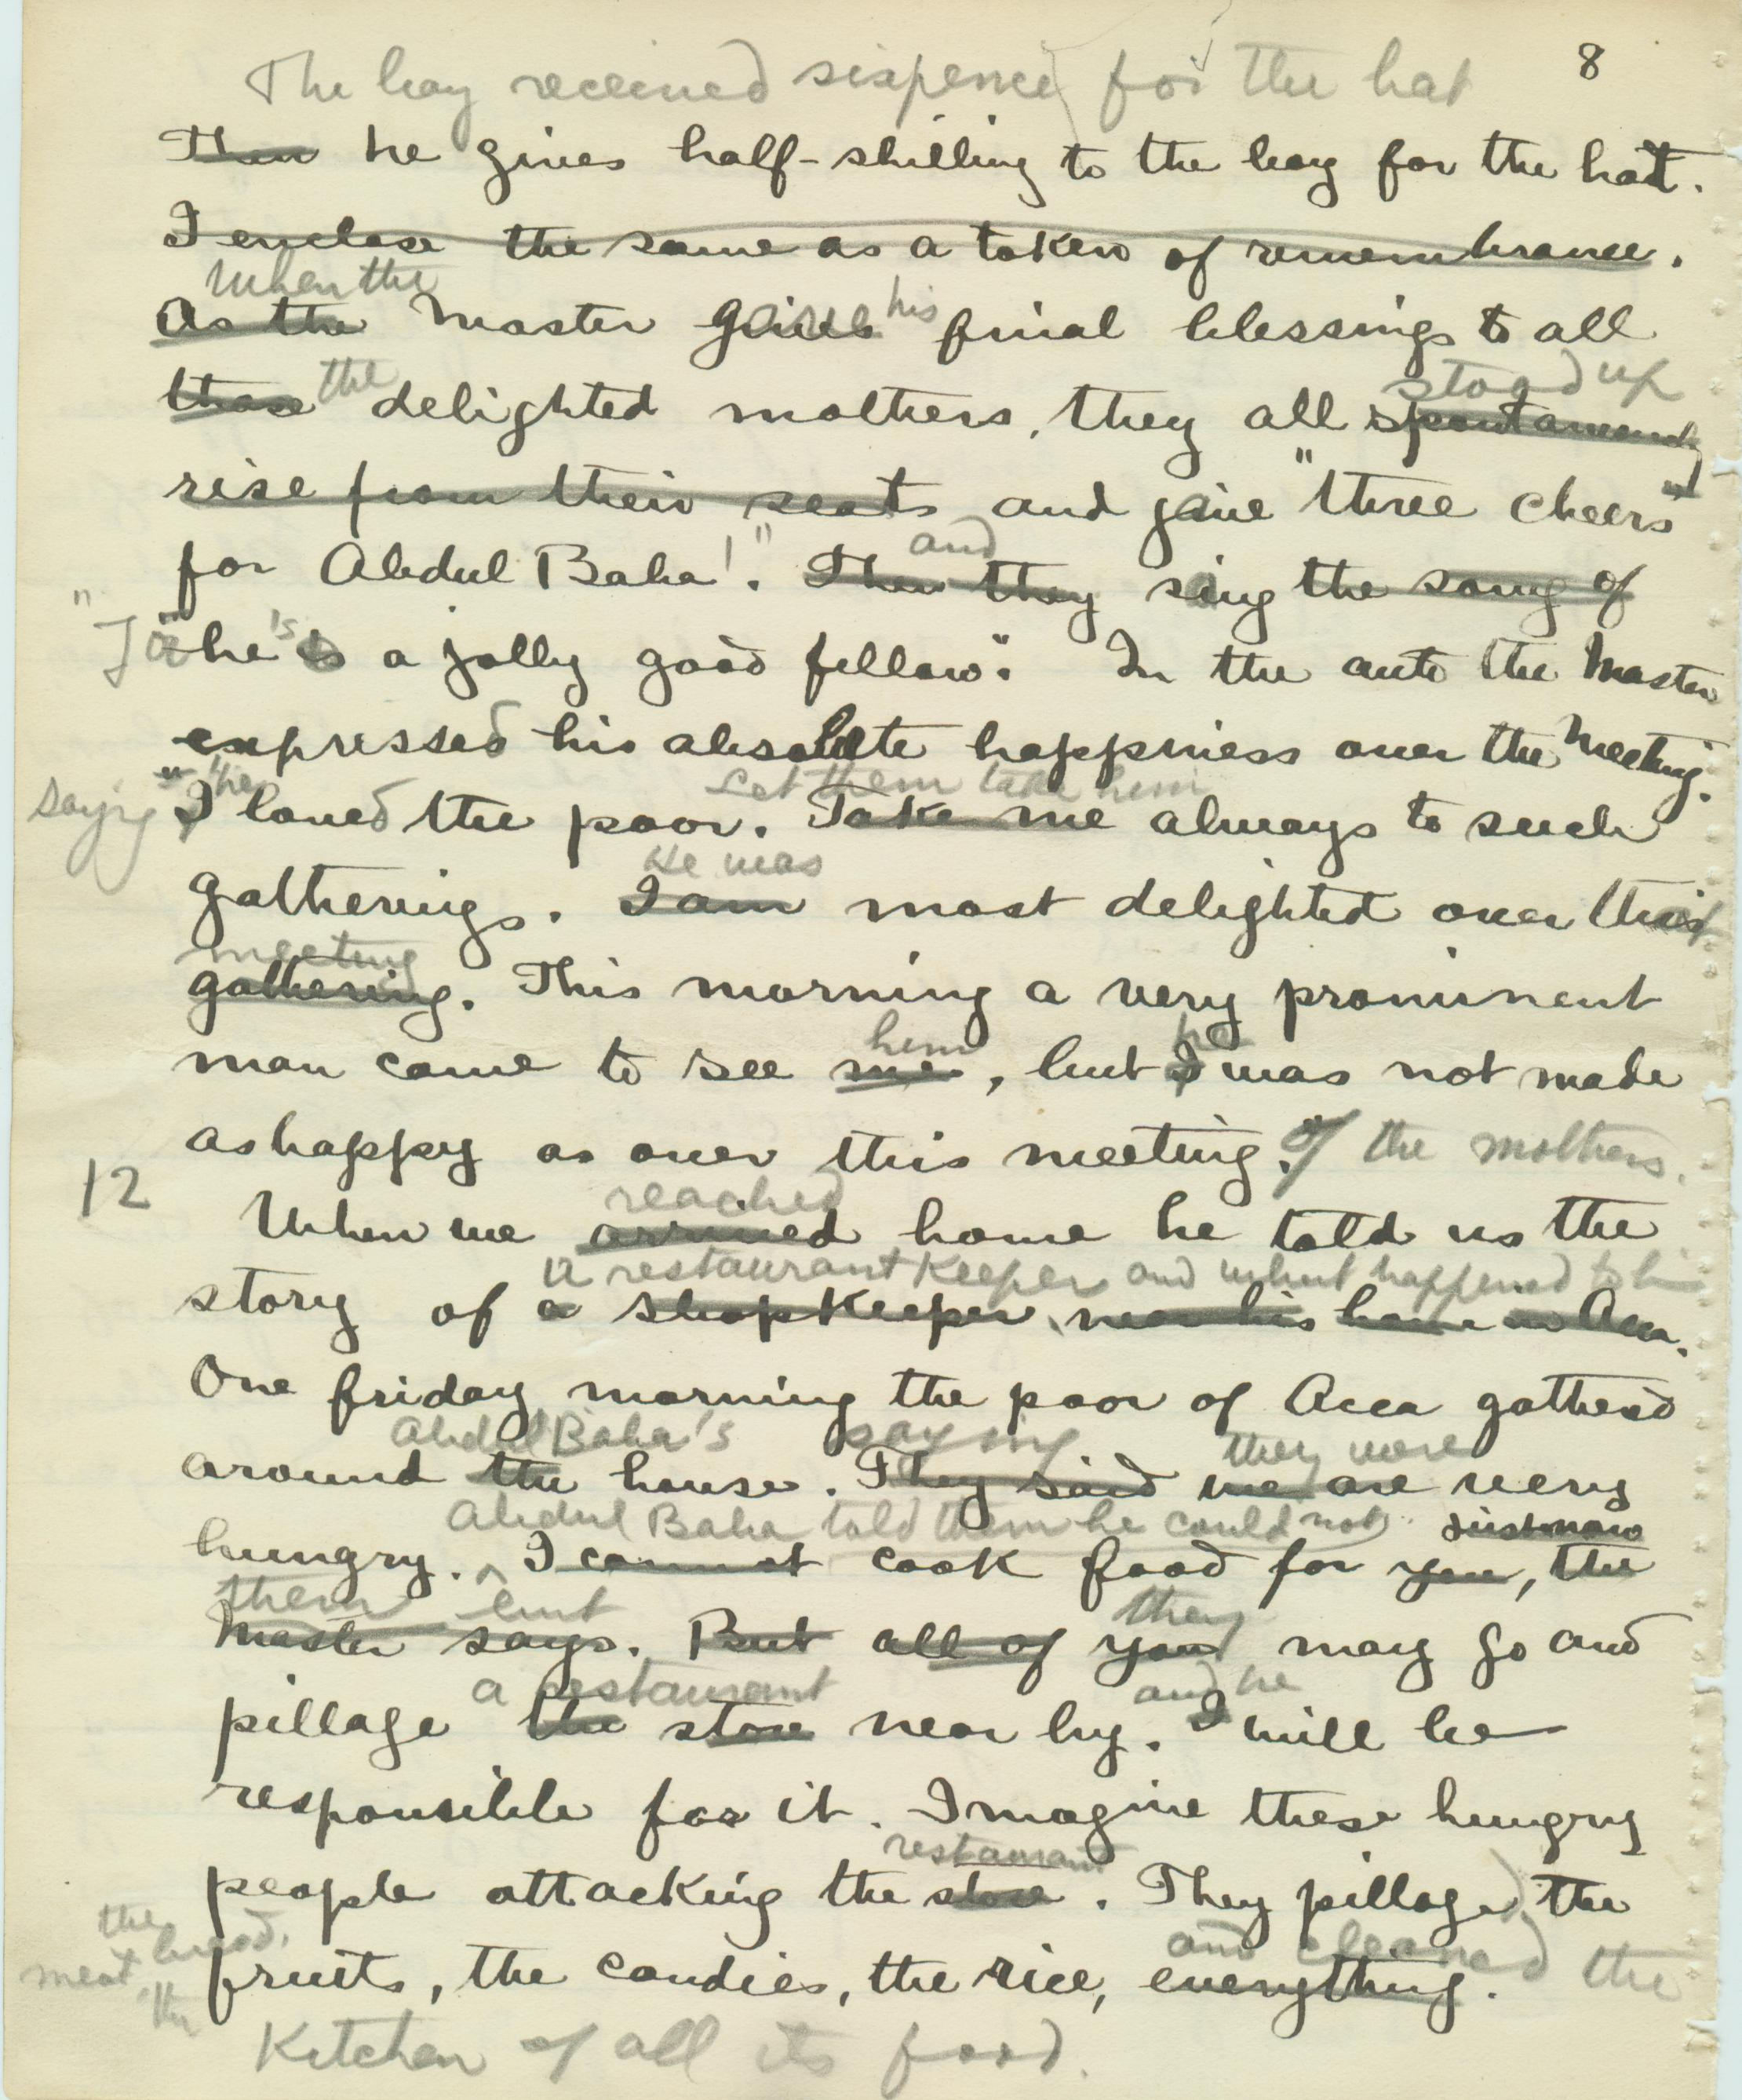 8
The boy received sixpence for the hat
Then he gives half-shilling to the boy for the hat.
I enclose the same as a token of remembrance.
When the
As the Master gives his final blessings to all
the stood up
those delighted mothers, they all spontaneously
rise from their seats and give "three cheers"
and
for Abdul Baha!". Then they sing the song of
"For he's is a jolly good fellow". In the auto the Master
expressed his absolute happiness over the Meeting.
he Let them take him
saying I loved the poor. Take me always to such
He was
gatherings. I am most delighted over this
meeting
gathering. This morning a very prominent
him he
man came to see me, but I was not made
as happy as over this meeting. of the mothers.
12
reached
When we arrived home he told us the
a restaurant Keeper and what happened to him
story of a shopKeeper, near his home in Acca.
One friday morning the poor of Acca gathered
Abdul Baha's saying they were
around the house. They said we are very
Abdul Baha told them he could not just now
hungry. I cannot cook food for you, the
them but they
Master says. But all of you may go and
a restaurant and he
pillage the store near by. I will be
responsible for it. Imagine these hungry
restaurant
people attacking the store. They pillaged the
the meat bread, the and cleaned the
fruits, the candies, the rice, everything.
Kitchen of all its food.